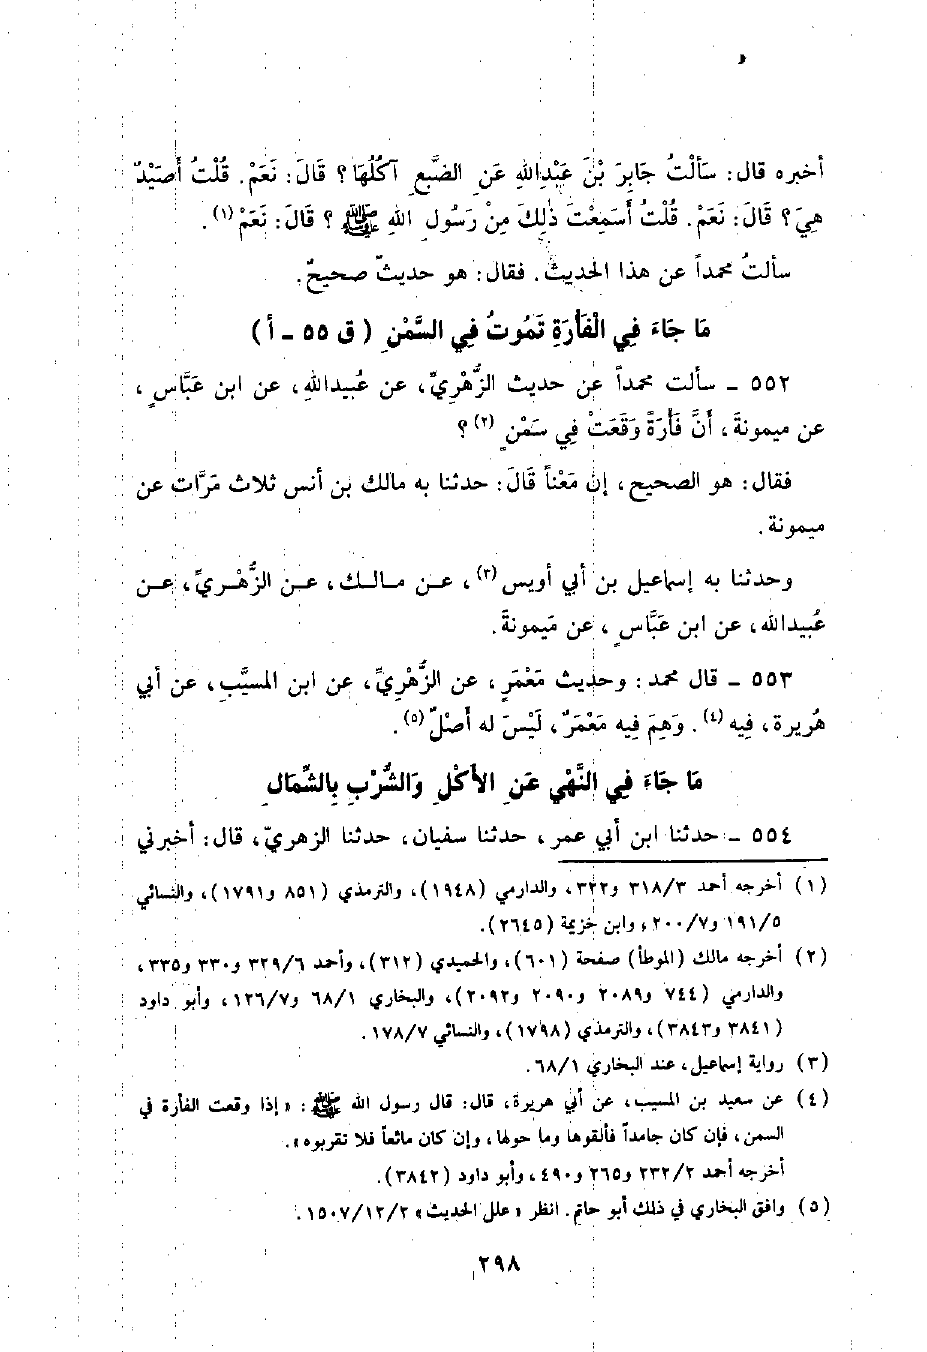 أخبره قال: سَأَلْتُ جَابِرَ بْنَ عَبْدِاللهِ عَنِ الضَّبُعِ آكُلُهَا؟ قَالَ: نَعَمْ. قُلْتُ أَصَيْدٌ
هِيَ؟ قَالَ: نَعَمْ. قُلْتُ أَسَمِعْتَ ذٰلِكَ مِنْ رَسُولِ اللهِ ﷺ ؟ قَالَ: نَعَمْ (١).
سألتُ محمداً عن هذا الحديث. فقال: هو حديثٌ صحيحٌ.
مَا جَاءَ فِي الْفَأرَةِ تَمُوتُ فِي السَّمْنِ (ق ٥٥ - أ)
٥٥٢ - سألت محمداً عن حديث الزُّهْرِيِّ، عن عُبيدالله، عن ابن عَبَّاسٍ،
عن ميمونةَ، أَنَّ فَأْرَةً وَقَعَتْ فِي سَمْنٍ (٢) ؟
فقال: هو الصحيح، إن مَعْناً قَالَ: حدثنا به مالك بن أنس ثلاث مَرَّات عن
ميمونة.
وحدثنا به إسماعيل بن أبي أويس (٣)، عن مالك، عن الزُّهْرِيِّ، عن
عُبيدالله، عن ابن عَبَّاسٍ، عن مَيمونةَ.
٥٥٣ - قال محمد: وحديث مَعْمَرٍ، عن الزُّهْرِيِّ، عن ابن المسيَّبِ، عن أبي
هُريرة، فِيه (٤). وَهِمَ فِيه مَعْمَرٌ، لَيْسَ له أَصْلٌ (٥).
مَا جَاءَ فِي النَّهْيِ عَنِ الأَكْلِ وَالشُّرْبِ بِالشِّمَالِ
٥٥٤ - حدثنا ابن أبي عمر، حدثنا سفيان، حدثنا الزهريّ، قال: أخبرني
(١) أخرجه أحمد ٣١٨/٣ و٣٢٢، والدارمي (١٩٤٨)، والترمذي (٨٥١ و١٧٩١)، والنسائي
١٩١/٥ و٢٠٠/٧، وابن خزيمة (٢٦٤٥).
(٢) أخرجه مالك (الموطأ) صفحة (٦٠١)، والحميدي (٣١٢)، وأحمد ٣٢٩/٦ و٣٣٠ و٣٣٥،
والدارمي (٧٤٤ و٢٠٨٩ و٢٠٩٠ و٢٠٩٢)، والبخاري ٦٨/١ و١٢٦/٧، وأبو داود
(٣٨٤١ و٣٨٤٣)، والترمذي (١٧٩٨)، والنسائي ١٧٨/٧.
(٣) رواية إسماعيل، عند البخاري ٦٨/١.
(٤) عن سعيد بن المسيب، عن أبي هريرة، قال: قال رسول الله ﷺ : «إذا وقعت الفأرة في
السمن، فإن كان جامداً فألقوها وما حولها، وإن كان مائعاً فلا تقربوه».
أخرجه أحمد ٢٣٢/٢ و٢٦٥ و٤٩٠، وأبو داود (٣٨٤٢).
(٥) وافق البخاري في ذلك أبو حاتم. انظر «علل الحديث» ١٥٠٧/١٢/٢.
٢٩٨